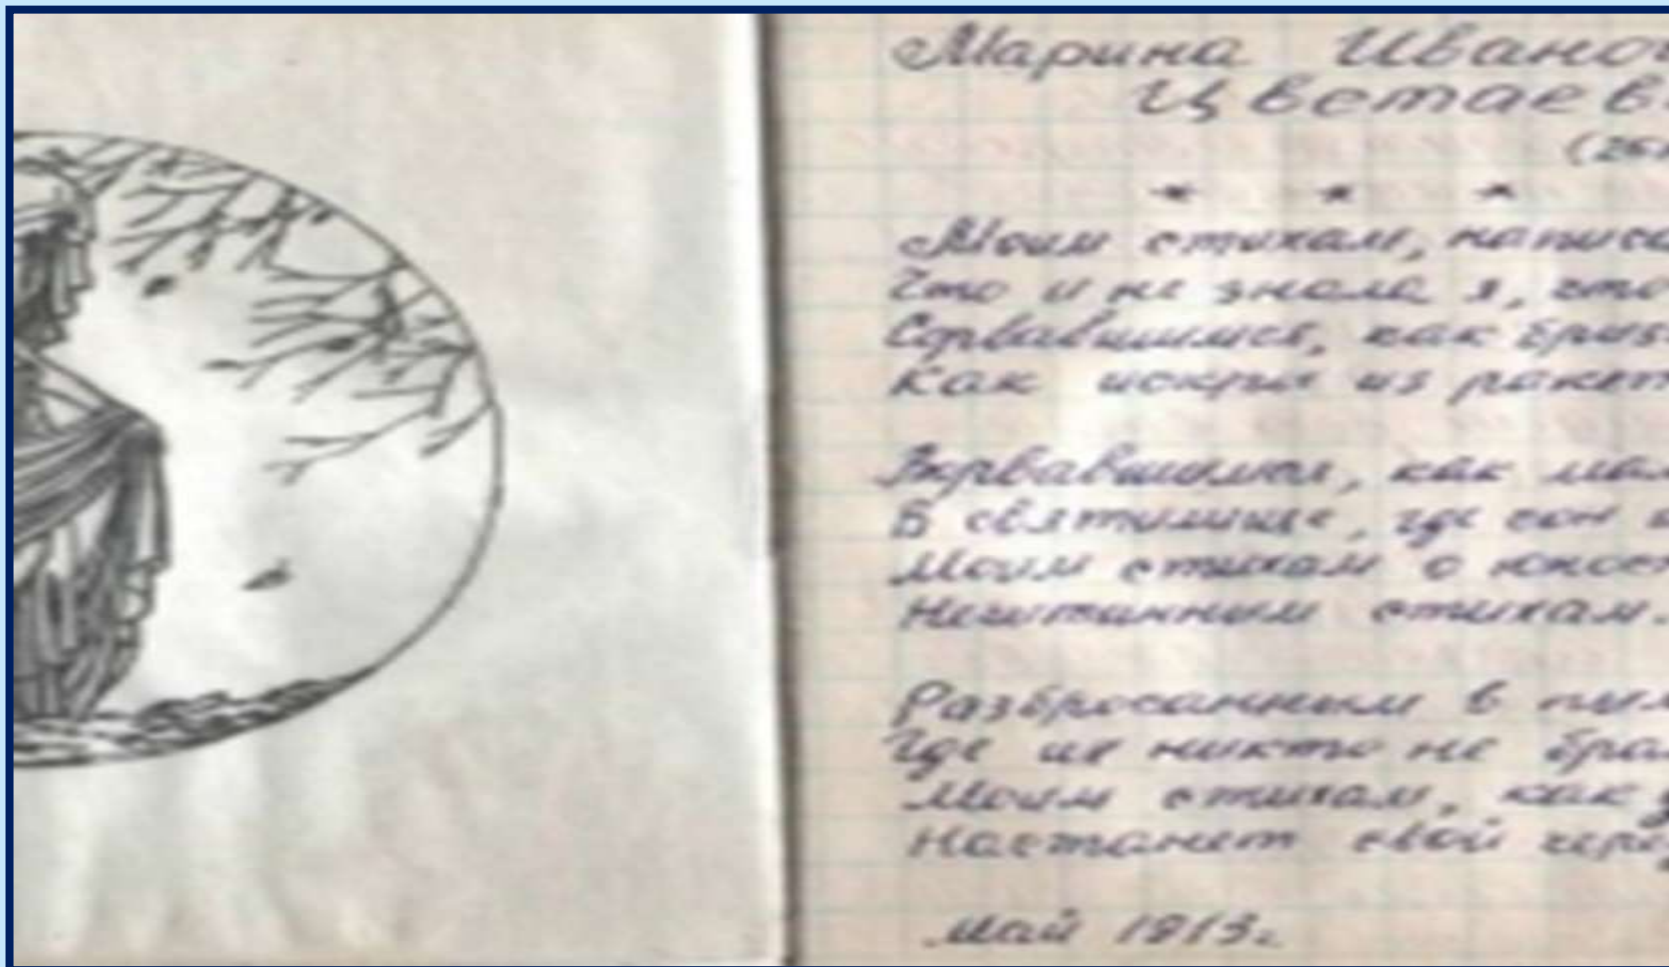 Марина Ивано
Цветаев
(26
* * *
Моим стихам, написа
Что и не знала я, что
Сорвавшимся, как брыз
Как искры из ракет
Ворвавшимся, как мал
В святилище, где сон и
Моим стихам о юнос
Нечитанным стихам.
Разбросанным в пыл
Где их никто не брал
Моим стихам, как
Настанет свой черёд
май 1913г